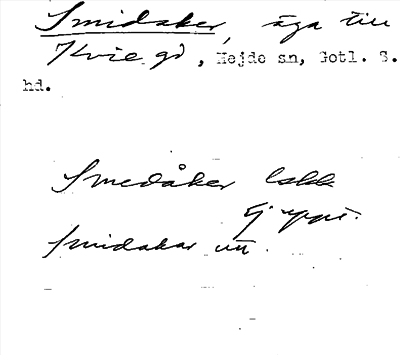 Smidaker, äga till
Kvie gd, Hejde sn, Gotl. S.
hd.
Smedåker
ej uppt.
Smidakar